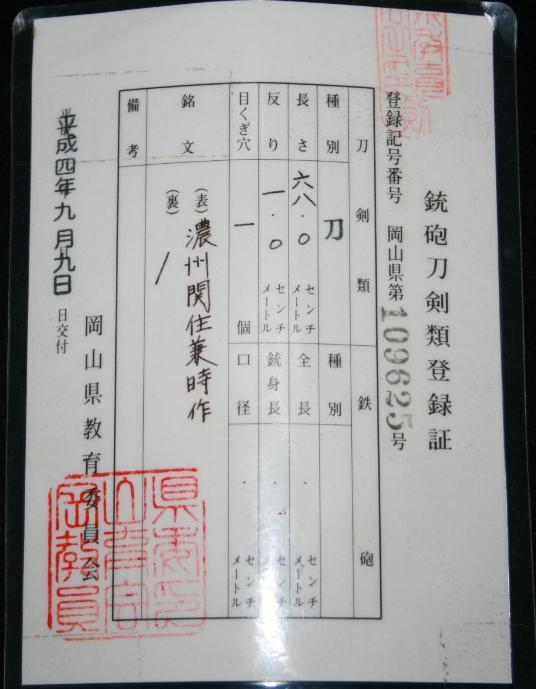 銃砲刀剣類登録証
登録記号番号 岡山県第109625号
刀剣類 鉄砲
種別 刀 種別
長さ 六八.〇 センチメートル 全長 . センチメートル
反り 一.〇 センチメートル 銃身長 . センチメートル
目くぎ穴 一 個 口径 . センチメートル
銘文 (表) 濃州関住兼時作
(裏) /
備考
平成四年九月九日 日交付
岡山県教育委員会